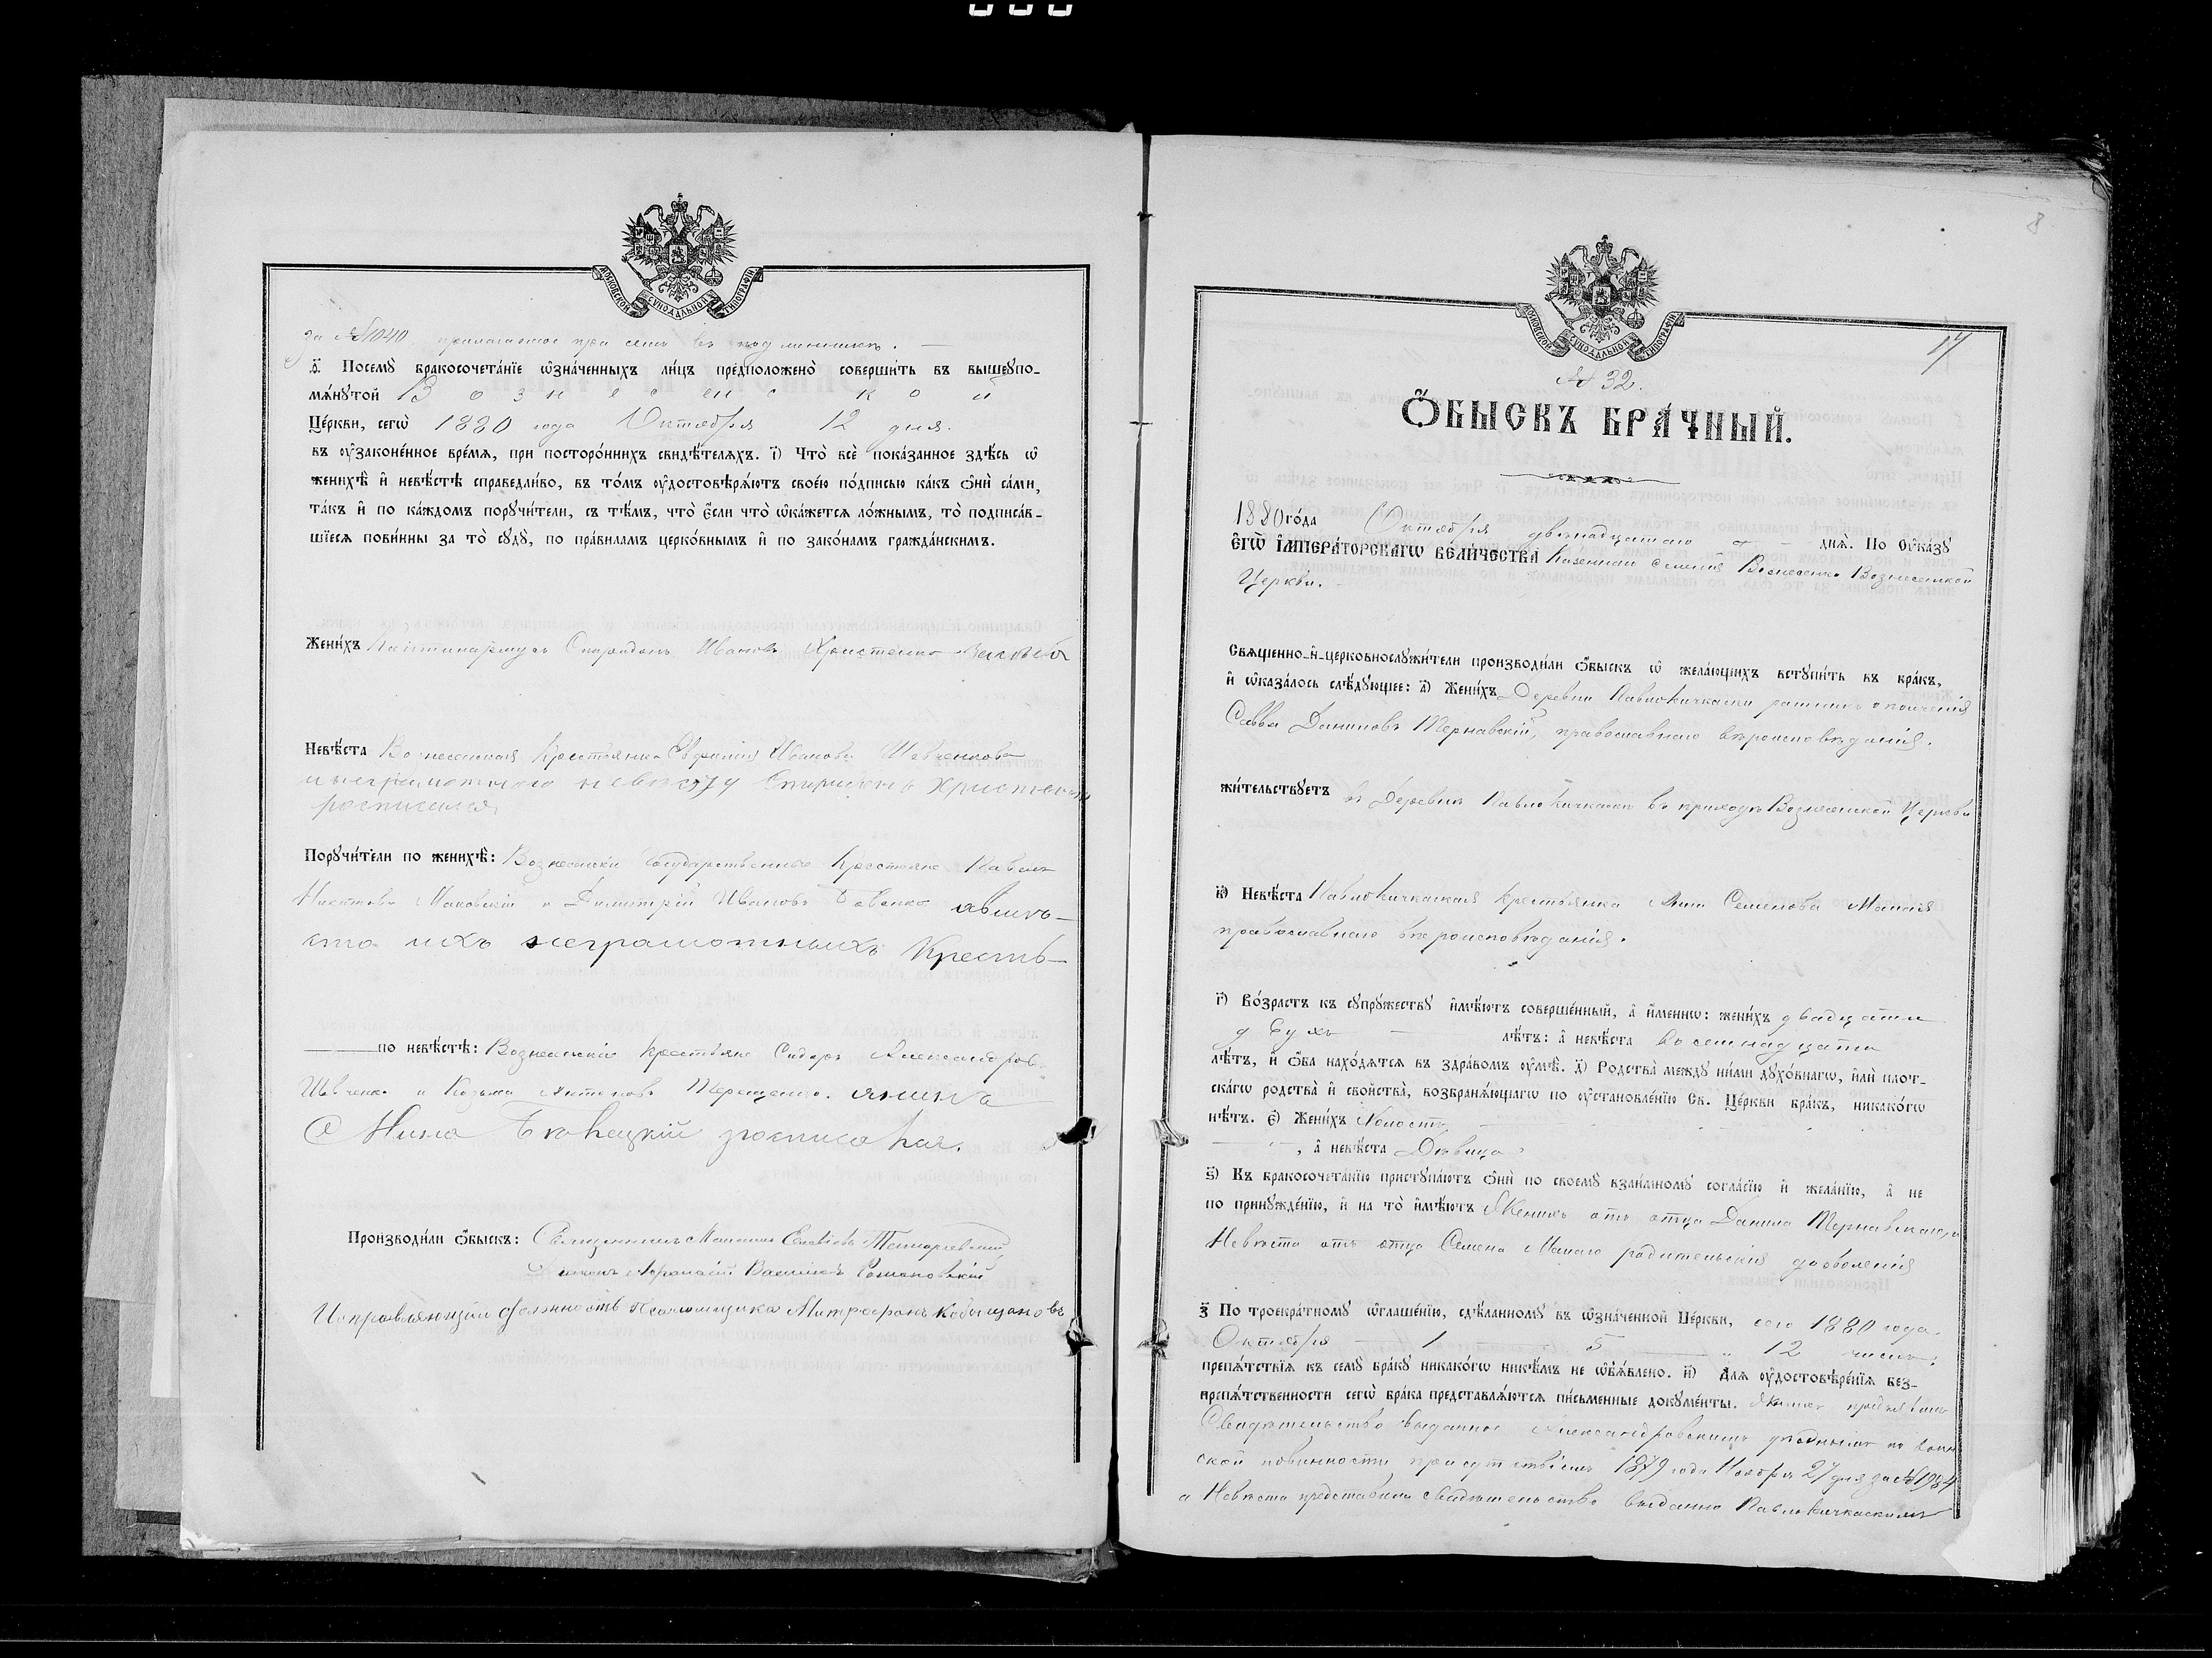 МОСКОВСКОЙ СѴНОДАЛЬНОЙ ТИПОГРАФІИ
за №1040 прилагаемое при семъ въ подлинникѣ. —
ѳ҃) Посемꙋ̀ бракосочета́нїе ѡ҆зна́ченныхъ ли́цъ предположено̀ соверши́ть въ вышеꙋпо-
мѧ́нꙋтой Вознесенской
Це́ркви, сегѡ̀ 1880 года Октября 12 дня.
въ ᲂу҆зако́ненное вре́мѧ, при посторо́ннихъ свидѣ́телѧхъ. і҃) Что̀ всѐ пока́занное здѣ́сь ѡ҆
женихѣ̀ и҆ невѣ́стѣ справедли́во, въ то́мъ ᲂу҆достовѣрѧ́ютъ свое́ю по́дписью ка́къ ѻ҆нѝ са́ми,
та́къ и҆ по ка́ждомъ порꙋчи́тели, съ тѣ́мъ, что̀ є҆́сли что̀ ѡ҆ка́жетсѧ ло́жнымъ, то̀ подписа́в-
шїесѧ пови́нны за то̀ сꙋдꙋ̀, по пра́виламъ церко́внымъ и҆ по зако́намъ гражда́нскимъ.
Жени́хъ Спиридонъ Ивановъ Христенко
Невѣ́ста Вознесенская Крестьянка Евфимія Иванова Шевченкова
неграмотного невесту Спиридонъ Христенко
росписался
Порꙋчи́тели по женихѣ̀: Вознесенски Государственные Крестьяне Павелъ
Никитовъ Маковскій и Димитрій Ивановъ Бабенко авмѣ-
сто ихъ неграмотныхъ Кресть-
по невѣ́стѣ: Вознесенскіе крестьяне Сидоръ Александров.
Шевченко и Козьма Антоновъ Терещенко.
росписался.
Производи́ли ѻ҆́быскъ: Священникъ
Афанасій Васильевъ Романовскій
Исправляющій должность Псаломщика Митрофанъ Кобыщановъ
8
МОСКОВСКОЙ СѴНОДАЛЬНОЙ ТИПОГРАФІИ
17
№ 32.
Ѻ҆́БЫСКЪ БРА́ЧНЫЙ.
1880 го́да Октября двенадцатаго днѧ̀. По ᲂу҆ка́зꙋ
Є҆гѡ̀ І҆мпера́торскагѡ вели́чества Казеннаго селенія Вознесенка Вознесенской
Церкви.
Свѧще́нно-и҆-церковнослꙋжи́тели производи́ли ѻ҆́быскъ ѡ҆ жела́ющихъ встꙋпи́ть въ бра́къ,
и҆ ѡ҆каза́лось слѣ́дꙋющее: а҃) Жени́хъ Деревни Павлокичкаски ратникъ ополченія
Савва Даниловъ Тернавскій, православнаго вѣроисповѣданія.
жи́тельствꙋетъ въ Деревнѣ Павлокичкаски въ приходѣ Вознесенской Церкви
в҃) Невѣ́ста Павлокичкаская крестьянка Анна Семенова Малая
православнаго вѣроисповѣданія.
г҃) Во́зрастъ къ сꙋпрꙋ́жествꙋ и҆мѣ́ютъ соверше́нный, а҆ и҆́меннѡ: жени́хъ двадцати
двухъ — лѣ́тъ: а҆ невѣ́ста восемнадцати
лѣ́тъ, и҆ ѻ҆́ба нахо́дѧтсѧ въ здра́вомъ ᲂу҆мѣ̀. д҃) Родства̀ междꙋ ни́ми дꙋхо́внагѡ, и҆лѝ плот-
ска́гѡ родства̀ и҆ сво́йства, возбранѧ́ющагѡ по ᲂу҆становле́нїю Св. Це́ркви бра́къ, никако́гѡ
нѣ́тъ. є҃) Жени́хъ Холостъ,
, а҆ невѣ́ста Дѣвица.
ѕ҃) Къ бракосочета́нїю пристꙋпа́ютъ ѻ҆нѝ по своемꙋ̀ взаи́мномꙋ согла́сїю и҆ жела́нїю, а҆ не
по принꙋжде́нїю, и҆ на то̀ и҆мѣ́ютъ Женихъ отъ отца Данила Тернавскаго, а
Невѣста отъ отца Семена Малаго родительскія дозволенія
з҃) По троекра́тномꙋ ѡ҆глаше́нїю, сдѣ́ланномꙋ въ ѡ҆зна́ченной Це́ркви, сего 1880 года
Октября 1 5 12 числъ,
препѧ́тствїѧ къ семꙋ̀ бра́кꙋ никако́гѡ никѣ́мъ не ѡ҆б̾ѧ́влено. и҃) Длѧ ᲂу҆достовѣре́нїѧ без-
препѧ́тственности сегѡ̀ бра́ка представлѧ́ютсѧ пи́сьменные докꙋме́нты. Женихъ предъявилъ
Свидѣтельство выданное Александровскимъ уѣзднымъ по воин
ской повинности присутствіемъ 1879 года Ноября 27 дня за №1984
а Невѣста представила свидѣтельство выданно Павлокичкаскимъ